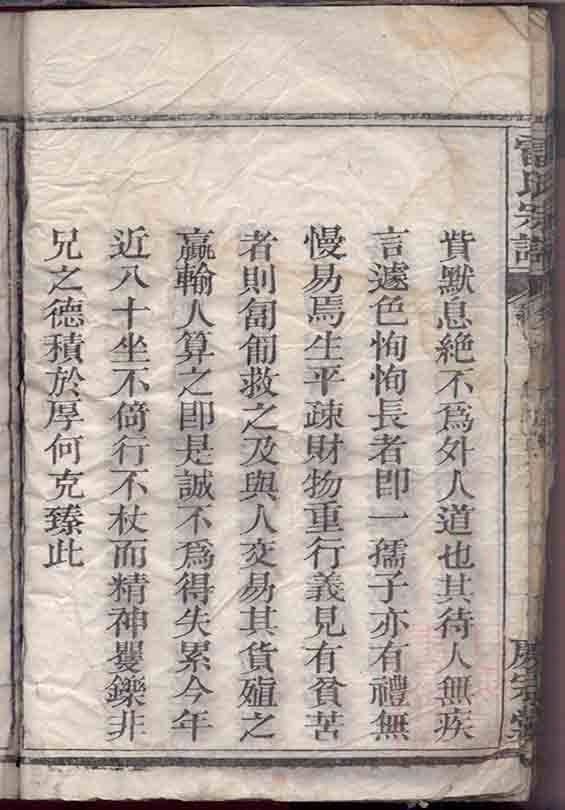 貲默息絶不爲外人道也其待人無疾
言遽色恂恂長者即一孺子亦有禮無
慢易焉生平疎財物重行義見有貧苦
者則匍匐救之及與人交易其貨殖之
贏輸人算之即是誠不爲得失累今年
近八十坐不倚行不杖而精神矍鑠非
兄之德積於厚何克臻此
雷氏宗譜